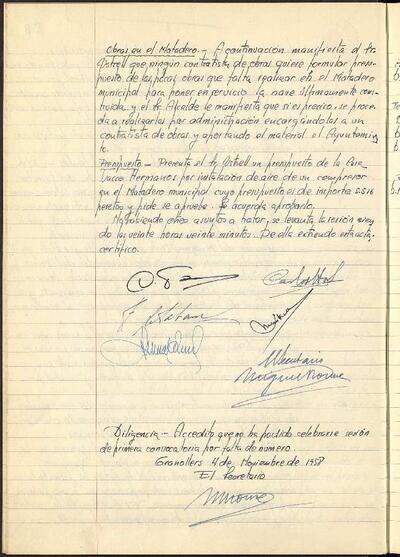 Obras en el Matadero.- A continuación manifiesta el Sr.
Ostrell que ningún contratista de obras quiere formular presu-
puesto de las pocas obras que falta realizar en el Matadero
municipal para poner en servicio la nave últimamente cons-
truida y el Sr. Alcalde le manifiesta que si es preciso se proce-
da a realizarlas por administración encargándolas a un
contratista de obras y aportando el material el Ayuntamien-
to.
Presupuesto.- Presenta el Sr. Ostrell un presupuesto de la Casa
Hermanos por instalación de aire de un compresor
en el Matadero municipal cuyo presupuesto es de importe 5516
pesetas y pide se apruebe. Se acuerda aprobarlo.
No habiendo otros asuntos a tratar, se levanta la sesión sien-
do las veinte horas veinte minutos. De ella extiendo esta acta,
certifico.
El Secretario
Diligencia.- Acredito que no ha podido celebrarse sesión
de primera convocatoria por falta de número.
Granollers 4 de Noviembre de 1958
El Secretario